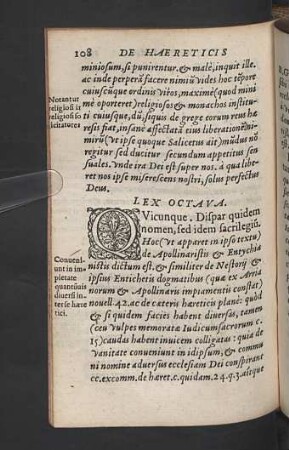 108 DE HAERETICIS
miniosum, si punirentur, & malè, inquit ille.
ac inde perperā facere nimiū vides hoc tēpore
cuiuscūque ordinis viros, maximè (quod mini
mè oporteret) religiosos & monachos institu
ti cuiusque, dū, siquos de grege eorum reus hæ
resis fiat, insanè affectāt eius liberationē: ni-
mirū (vt ipse quoque Salicetus ait) mūdus nō
regitur sed ducitur secundum appetitus sen
suales. Vnde ira Dei est super nos, à qua libe
ret nos ipse miserescens nostri, solus perfectus
Deus.
Notantur
religiosi ir
religiosi so
licitatores
LEX OCTAVA.
QVicunque. Dispar quidem
nomen, sed idem sacrilegiū.
Hoc (vt apparet in ipso textu)
de Apollinaristis & Eutychia
nistis dictum est, & similiter de Nestorij &
ipsius Enticheris dogmatibus (quæ ex Arria
norum & Apollinaris impiamentis constat)
nouell 42. ac de cæteris hæreticis planè: quod
& si quidem facies habent diuersas, tamen
(ceu vulpes memoratæ Iudicum sacrorum c.
15) caudas habent inuicem colligatas: quia de
vanitate conueniunt in idipsum, & commu
ni nomine aduersus ecclesiam Dei conspirant
cc. excomm. de hæret. c. quidam. 24. q. 3. aisque
Conueni-
unt in im
pietate
quantūuis
diuersi in-
ter se hære
tici.